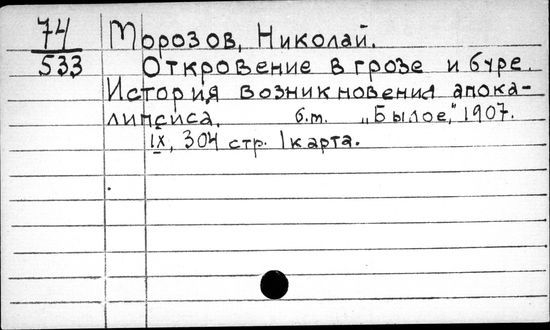 74
533
Морозов, Николай.
Откровение в грозе и буре.
История возникновения апока-
липсиса. б.т. „Былое," 1907.
IX, 304 стр. 1 карта.